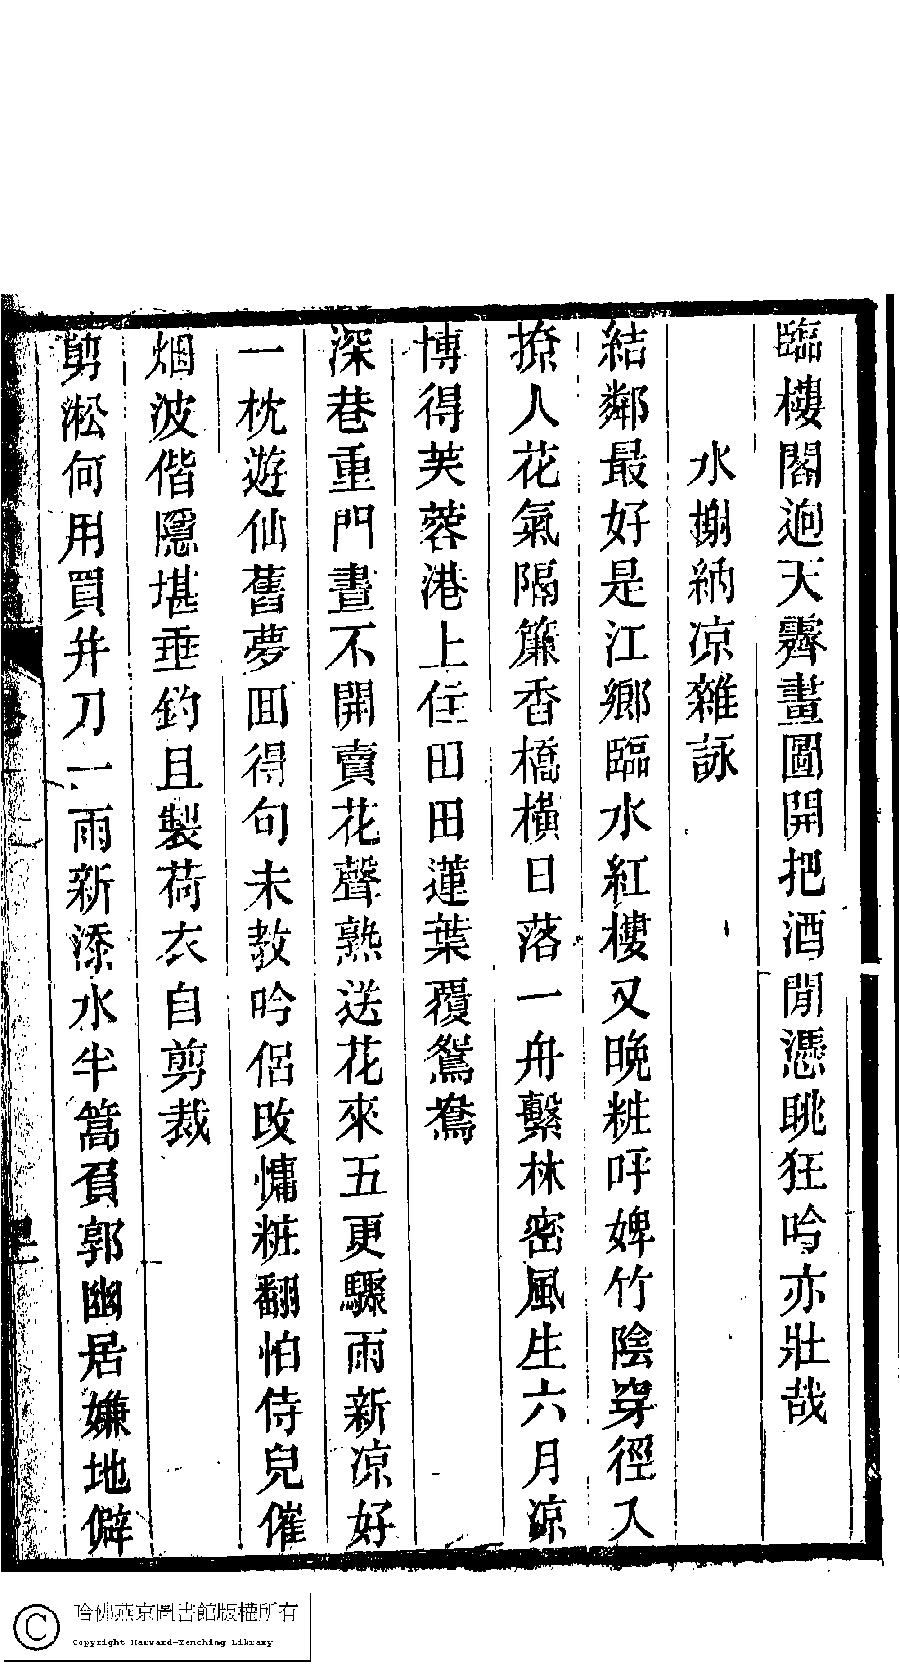 臨樓閣迥天霽畫圖開把酒閒憑眺狂吟亦壯哉
水榭納凉雜詠
結鄰最好是江鄉臨水紅樓又晚粧呼婢竹陰穿徑入
撩人花氣隔簾香橋橫日落一舟繫林密風生六月凉
博得芙蓉港上住田田蓮葉覆鴛鴦
深巷重門晝不開賣花聲熟送花來五更驟雨新凉好
一枕遊仙舊夢回得句未教吟侶改慵粧翻怕侍兒催
烟波偕隱堪垂釣且製荷衣自剪裁
剪淞何用買并刀一雨新添水半篙負郭幽居嫌地僻
哈佛燕京圖書館版權所有
Copyright Harvard-Yenching Library